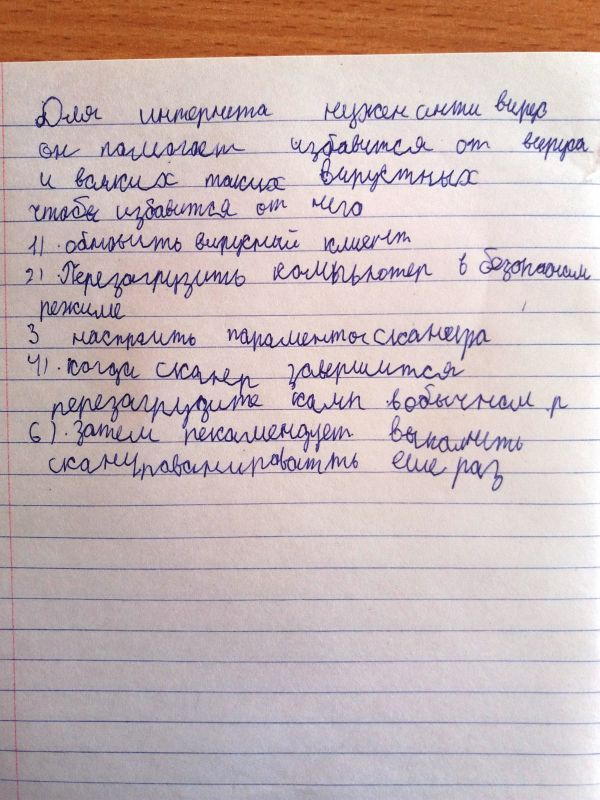 Для интернета нужен анти вирус
он памагает избавится от вируса
и всяких таких вирустных
чтобы избавится от него
1). обновить вирусный клиент
2) Перезагрузить компьютер в безопасном
режиме
3 настраить параментры сканера
4). когда сканер завершится
перезагрузите камп в обычном р
6). Затем рекамендует выпалнить
сканированировать еше раз